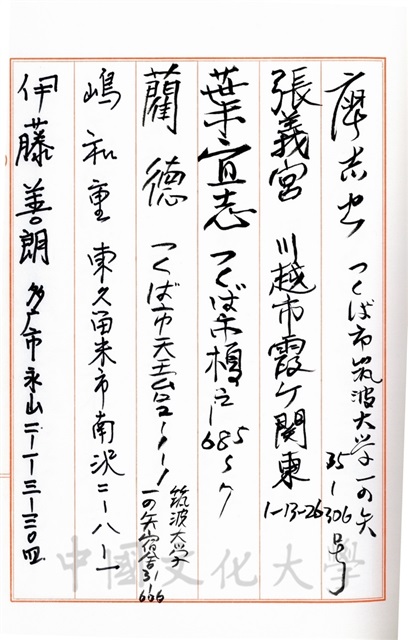 廖吉史 つくば市筑波大学一の矢 35-306号
張義宮 川越市霞ヶ関東 1-13-26
葉宜志 つくば市榎戸 685-7
藺徳 つくば市天王台1-1-1 筑波大学一の矢宿舎31-606
嶋和重 東久留米市南沢二-八-一
伊藤善朗 多摩市永山二-一-三-三〇四
中國文化大學